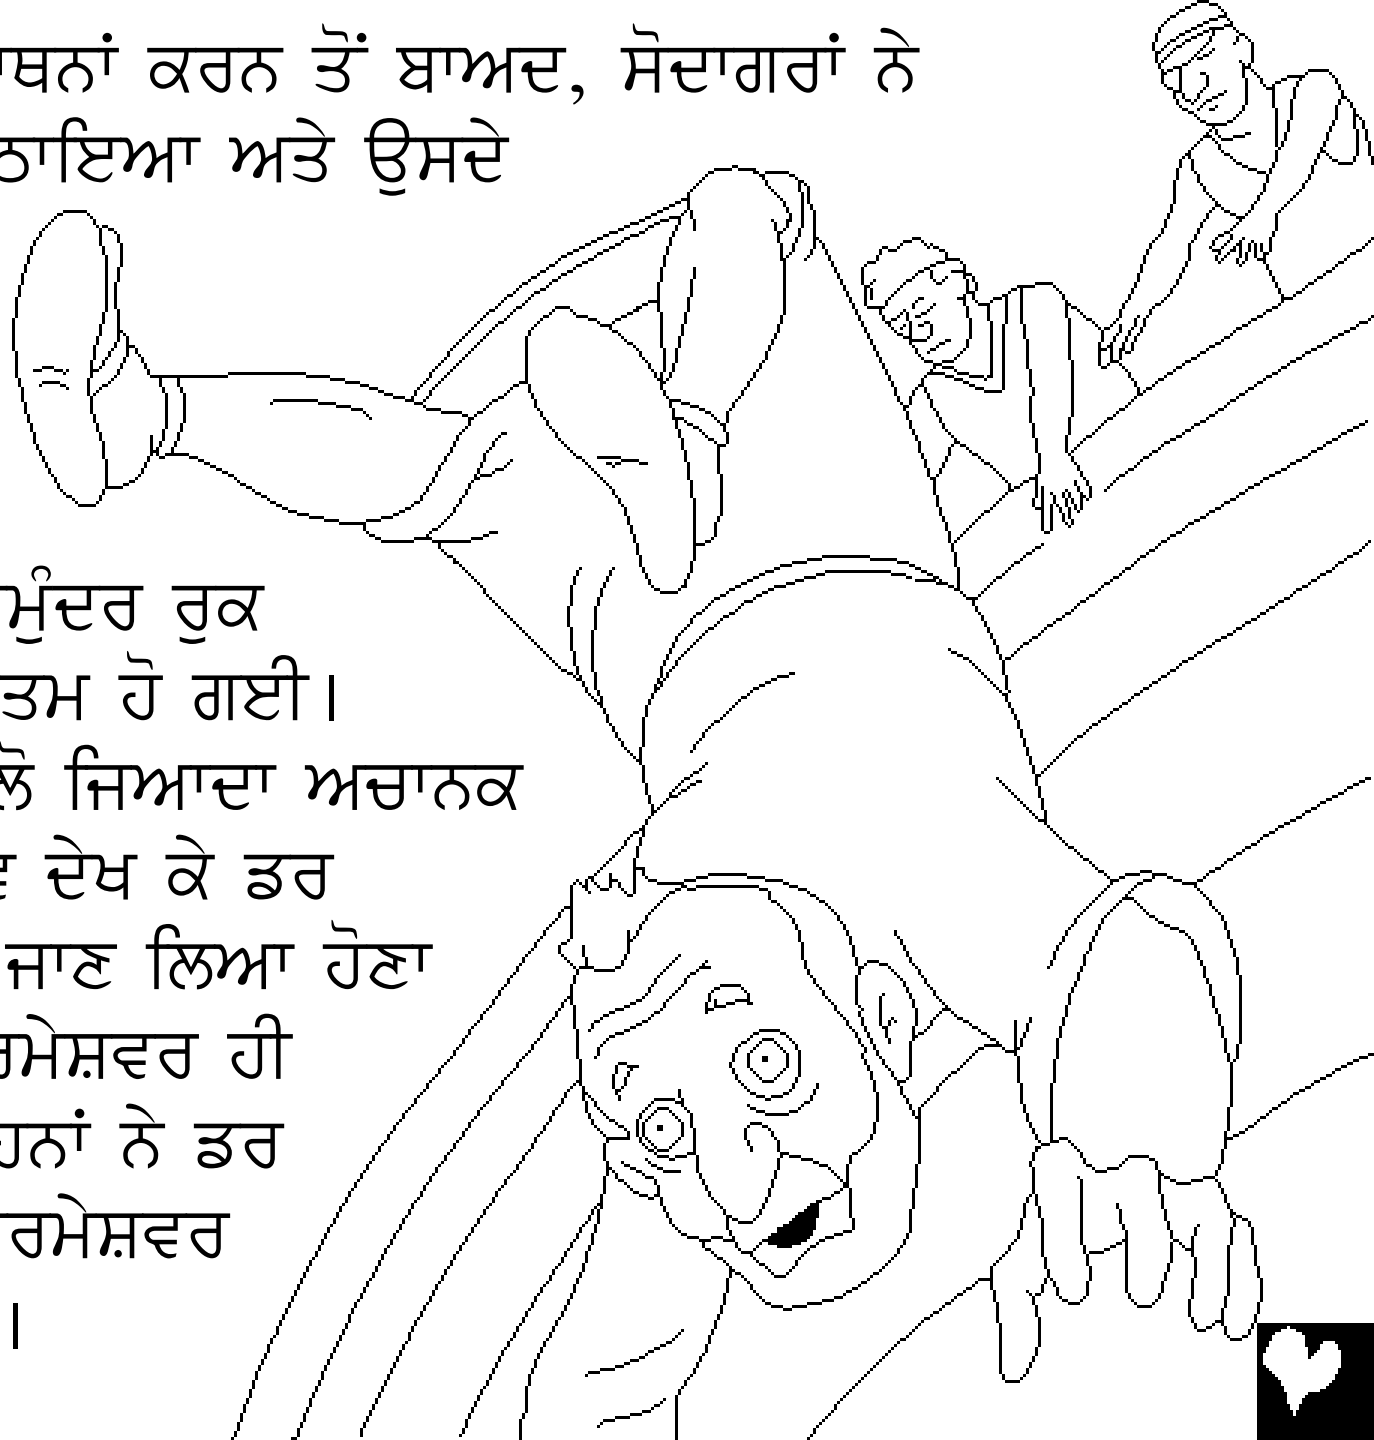 ਾਥਨਾਂ ਕਰਨ ਤੋਂ ਬਾਅਦ, ਸੋਦਾਗਰਾਂ ਨੇ
ਠਾਇਆ ਅਤੇ ਉਸਦੇ
ਮੁੰਦਰ ਰੁਕ
ਤਮ ਹੋ ਗਈ।
ਲੋ ਜਿਆਦਾ ਅਚਾਨਕ
ਦੇਖ ਕੇ ਡਰ
ਜਾਣ ਲਿਆ ਹੋਣਾ
ਰਮੇਸ਼ਵਰ ਹੀ
ਹਨਾਂ ਨੇ ਡਰ
ਰਮੇਸ਼ਵਰ
।